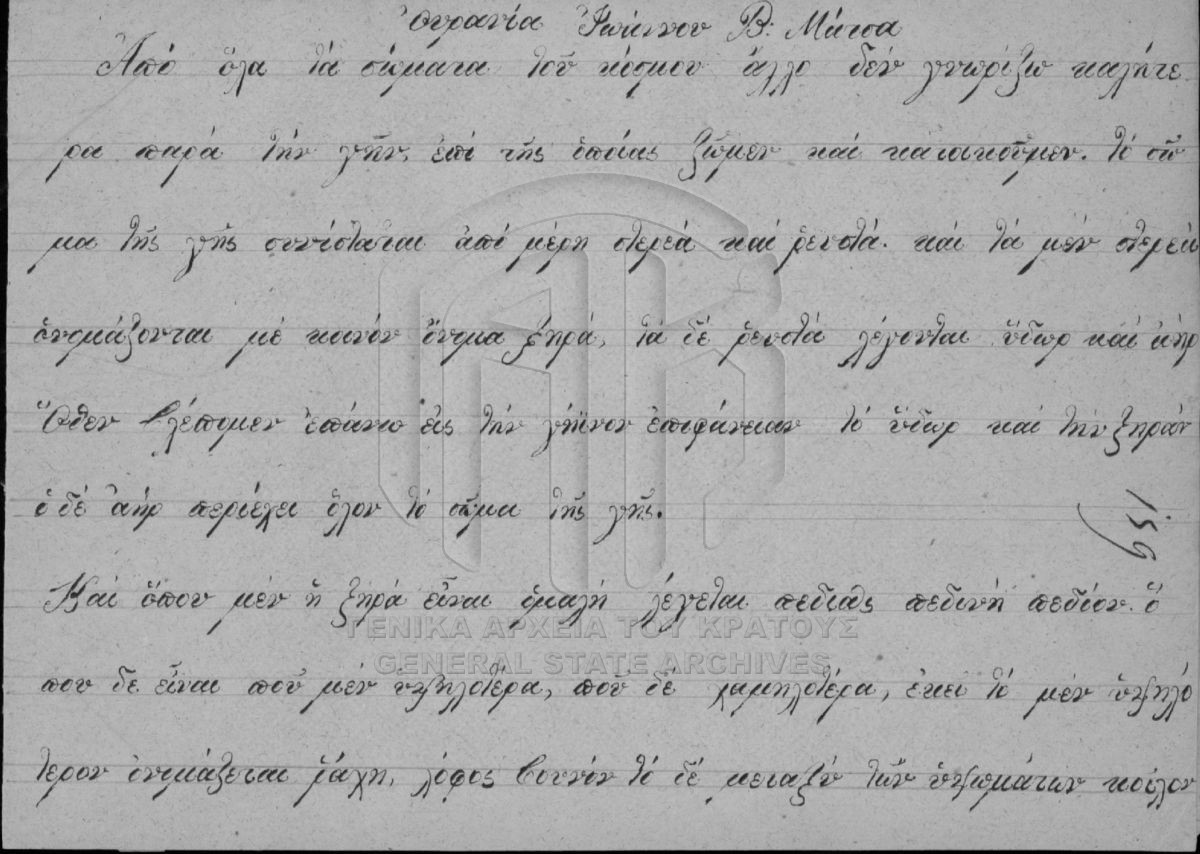 Οὐρανία Ἰωάννου Β: Μάτσα
Ἀπό ὅλα τά σώματα τοῦ κόσμου ἄλλο δέν γνωρίζω καλήτε
ρα παρά τήν γῆν, ἐπί τῆς ὁποίας ζῶμεν καί κατοικοῦμεν. τό σῶ
μα τῆς γῆς συνίσταται ἀπό μέρη στερεά καί ῥευστά. καί τά μέν στερεά
ὀνομάζονται μέ κοινόν ὄνομα ξηρά, τά δέ ῥευστά λέγονται ὕδωρ καί ἀήρ
Ὅθεν βλέπομεν ἐπάνω εἰς τήν γήϊνον ἐπιφάνειαν τό ὕδωρ καί τήν ξηράν
ὁ δέ ἀήρ περιέχει ὅλον τό σῶμα τῆς γῆς.
Καί ὅπου μέν ἡ ξηρά εἶναι ὁμαλή λέγεται πεδιάς πεδινή πεδίον. ὅ
που δε εἶναι ποῦ μέν ὑψηλοτέρα, ποῦ δέ χαμηλοτέρα, ἐκεῖ τό μέν ὑψηλό
τερον ὀνομάζεται ῥάχη, λόφος βουνόν τό δέ μεταξύ τῶν ὑψωμάτων κοῖλον
ΓΕΝΙΚΑ ΑΡΧΕΙΑ ΤΟΥ ΚΡΑΤΟΥΣ
GENERAL STATE ARCHIVES